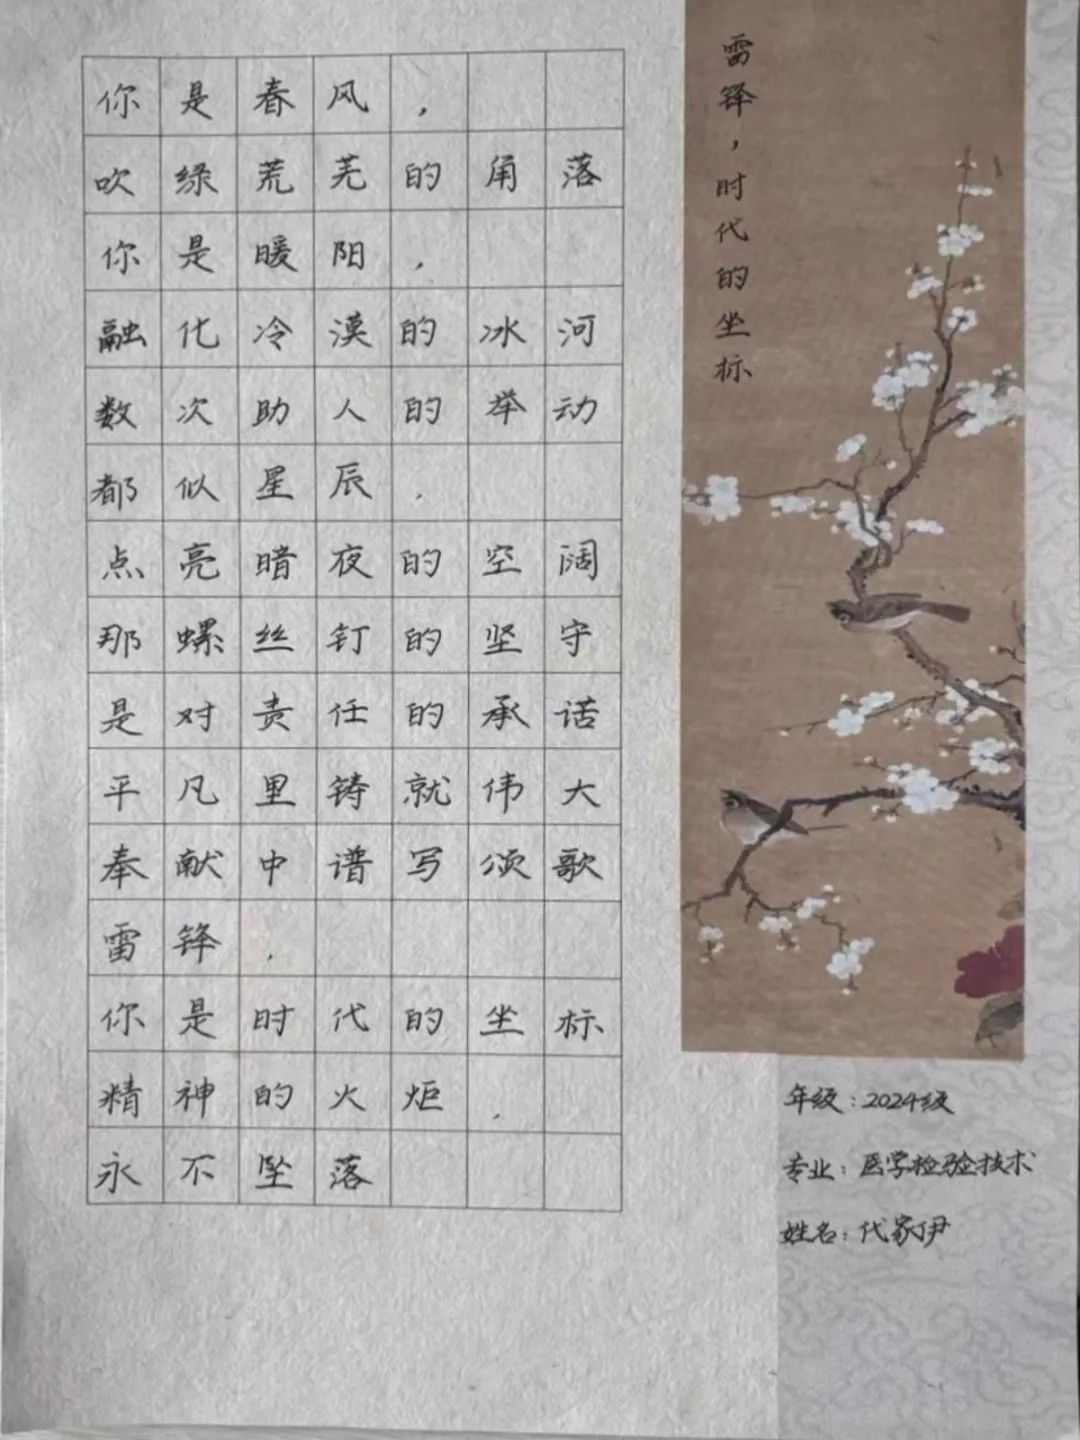 雷锋，时代的坐标
你是春风，
吹绿荒芜的角落
你是暖阳，
融化冷漠的冰河
数次助人的举动
都似星辰，
点亮暗夜的空阔
那螺丝钉的坚守
是对责任的承诺
平凡里铸就伟大
奉献中谱写颂歌
雷锋，
你是时代的坐标
精神的火炬，
永不坠落
年级：2024级
专业：医学检验技术
姓名：代家伊